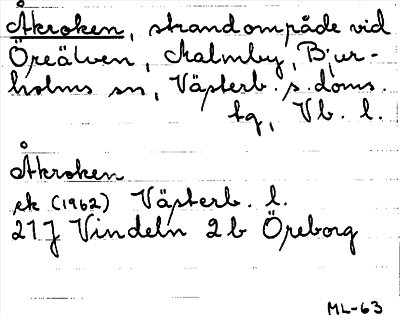 Åkroken, strandområde vid
Öreälven, Kalmby, Bjur-
holms sn, Västerb. s. doms.
tg, Vb. l.
Åkroken
ek (1962) Västerb. l.
21J Vindeln 2b Öreborg
ML-63